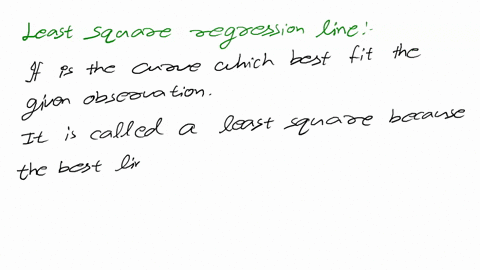 Least square regression line:-
It is the curve which best fit the
given observation.
It is called a least square because
the best li